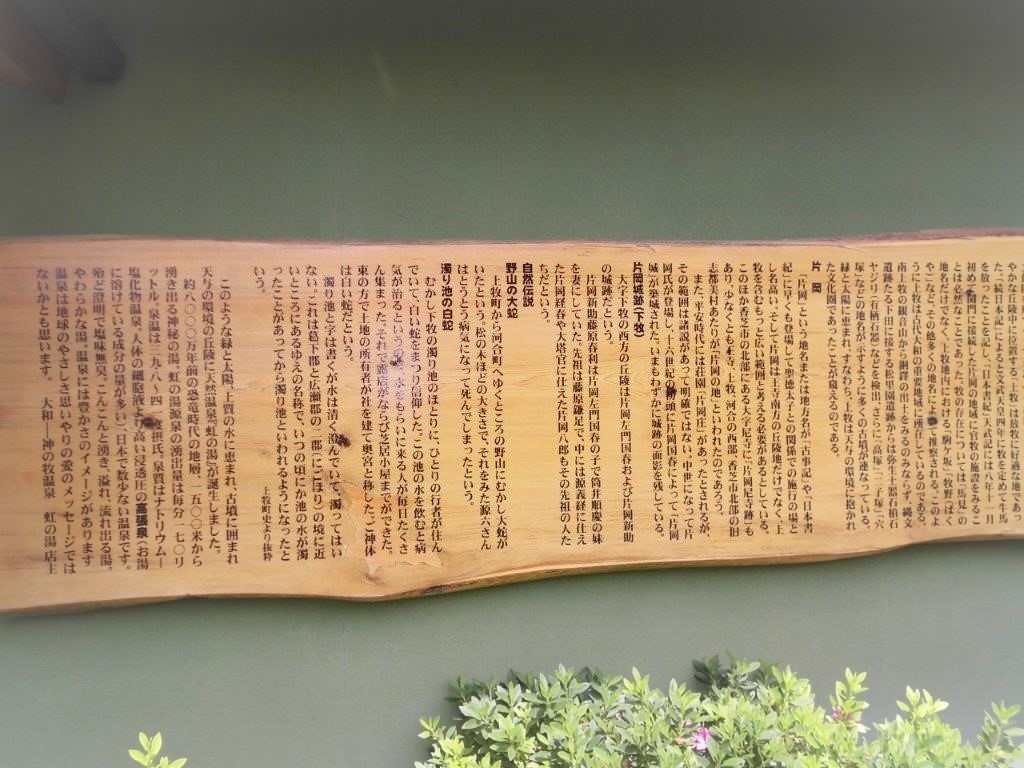 やかな丘陵中に位置する「上牧」は放牧に好適な地で
あった。「続日本紀」によると文武天皇四年に牧を定めて牛馬
を放ったことを記し、「日本書紀」天武記には八年十一月
初めて関門に接続した片岡の地域に官牧の施設をみるこ
とは必然なことであった。牧の存在については「馬見」の
地名だけでなく、上牧地内における「駒ケ坂」「牧野」「ばく
や」など、その他多くの地名によって推察される。このよ
うに上牧は古代大和の重要地域に所在しているのである。
南上牧の観音山から銅鐸の出土をみるのみならず、縄文
遺跡たる下田に接する松里園遺跡からは弥生土器石槍石
ヤジリ(有柄石器)などを検出、さらに「高塚」「二子塚」「穴
塚」などの地名が示すように多くの古墳が連なっている。
緑と太陽に恵まれ、すなわち、上牧は天与の環境に抱かれ
た文化圏であったことが窺えるのである。
片 岡
「片岡」という地名または地方名が「古事記」や「日本書
紀」に早くも登場して聖徳太子との関係での施行の場と
し名高い。そして片岡は王寺南方の丘陵地だけでなく、上
牧を含むもっと広い範囲と考える必要があるとしている。
このほか香芝市の北部にある大字尼寺に「片岡尼寺跡」も
あり、少なくとも王寺、上牧、河合の西部、香芝市北部の旧
志都美村あたりが「片岡の地」といわれたのであろう。
また、平安時代には荘園「片岡庄」があったとされるが、
その範囲は諸説があって明確ではない。中世になって片
岡氏が登場し、十六世紀の初頭に片岡国春によって「片岡
城」が築城された。いまもわずかに城跡の面影を残している。
片岡城跡(下牧)
大字下牧の西方の丘陵は片岡左門国春および片岡新助
の城跡だという。
片岡新助藤原春利は片岡左門国春の子で筒井順慶の妹
を妻にしていた。先祖は藤原鎌足で、中には源義経に仕え
た片岡経春や大塔宮に仕えた片岡八郎もその先祖の人た
ちだという。
自然伝説
野山の大蛇
上牧町から河合町へゆくところの野山にむかし大蛇が
いたという。松の木ほどの大きさで、それをみた源六さん
はとうとう病気になって死んでしまったという。
濁り池の白蛇
むかし、下牧の濁り池のほとりに、ひとりの行者が住ん
でいて、白い蛇をまつり信仰した。この池の水を飲むと病
気が治るというので、水をもらいに来る人が毎日たくさ
ん集まった。それで露店がならび芝居小屋までができた。
東の方で土地の所有者が社を建て奥宮と称した。ご神体
は白い蛇だという。
濁り池と字は書くが水は清く澄んでいて、濁ってはい
ない。これは葛下郡と広瀬郡の二郡(にごほり)の境に近
いところにあるゆえの名称で、いつの頃にか池の水が濁
ったことがあってから濁り池といわれるようになったと
いう。
上牧町史より抜粋
このような緑と太陽、上質の水に恵まれ、古墳に囲まれ
天与の環境の丘陵に天然温泉『虹の湯』が誕生しました。
約八〇〇〇万年前の恐竜時代の地層、一五〇〇米から
湧き出る神秘の湯、虹の湯源泉の湧出量は毎分一七〇リ
ットル。泉温は三九・八〜四一度摂氏、泉質はナトリウム―
塩化物温泉、人体の細胞液より高い浸透圧の高張泉(お湯
に溶けている成分の量が多い)、日本で数少ない温泉です。
殆ど澄明で塩味無臭。こんこんと湧き、溢れ、流れ出る湯。
やわらかな湯。温泉には豊かさのイメージがあります
温泉は地球のやさしさ思いやりの愛のメッセージでは
ないかとも思います。 大和―神の牧温泉 虹の湯店主